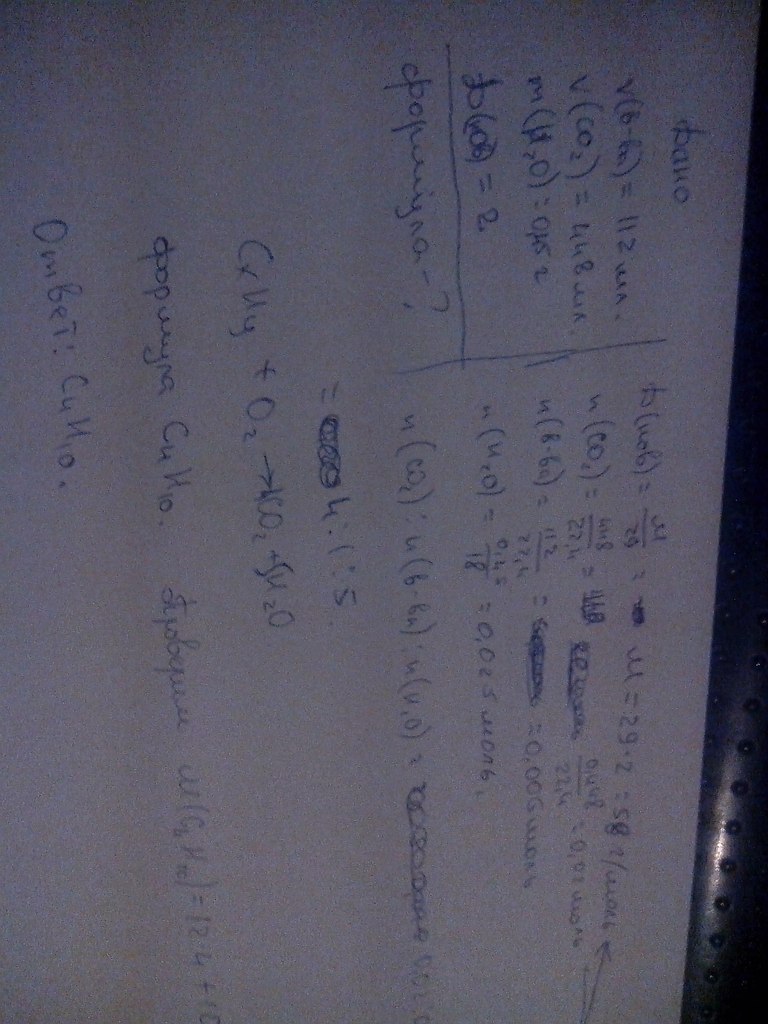 Дано
V(в-ва) = 112 мл.
V(CO₂) = 448 мл.
m(H₂O) = 0,45 г
D(воз) = 2
формула - ?
D(воз) = M/29 = M = 29·2 = 58 г/моль
n(CO₂) = 448/22,4 = 0,448/22,4 = 0,02 моль
n(в-ва) = 112/22,4 = = 0,005 моль
n(H₂O) = 0,45/18 = 0,025 моль.
n(CO₂) : n(в-ва) : n(H₂O) = 0,02:0
= 4 : 1 : 5
CxHy + O₂ → 4CO₂ + 5H₂O
формула C₄H₁₀. Проверим M(C₄H₁₀) = 12·4 + 10
Ответ: C₄H₁₀.